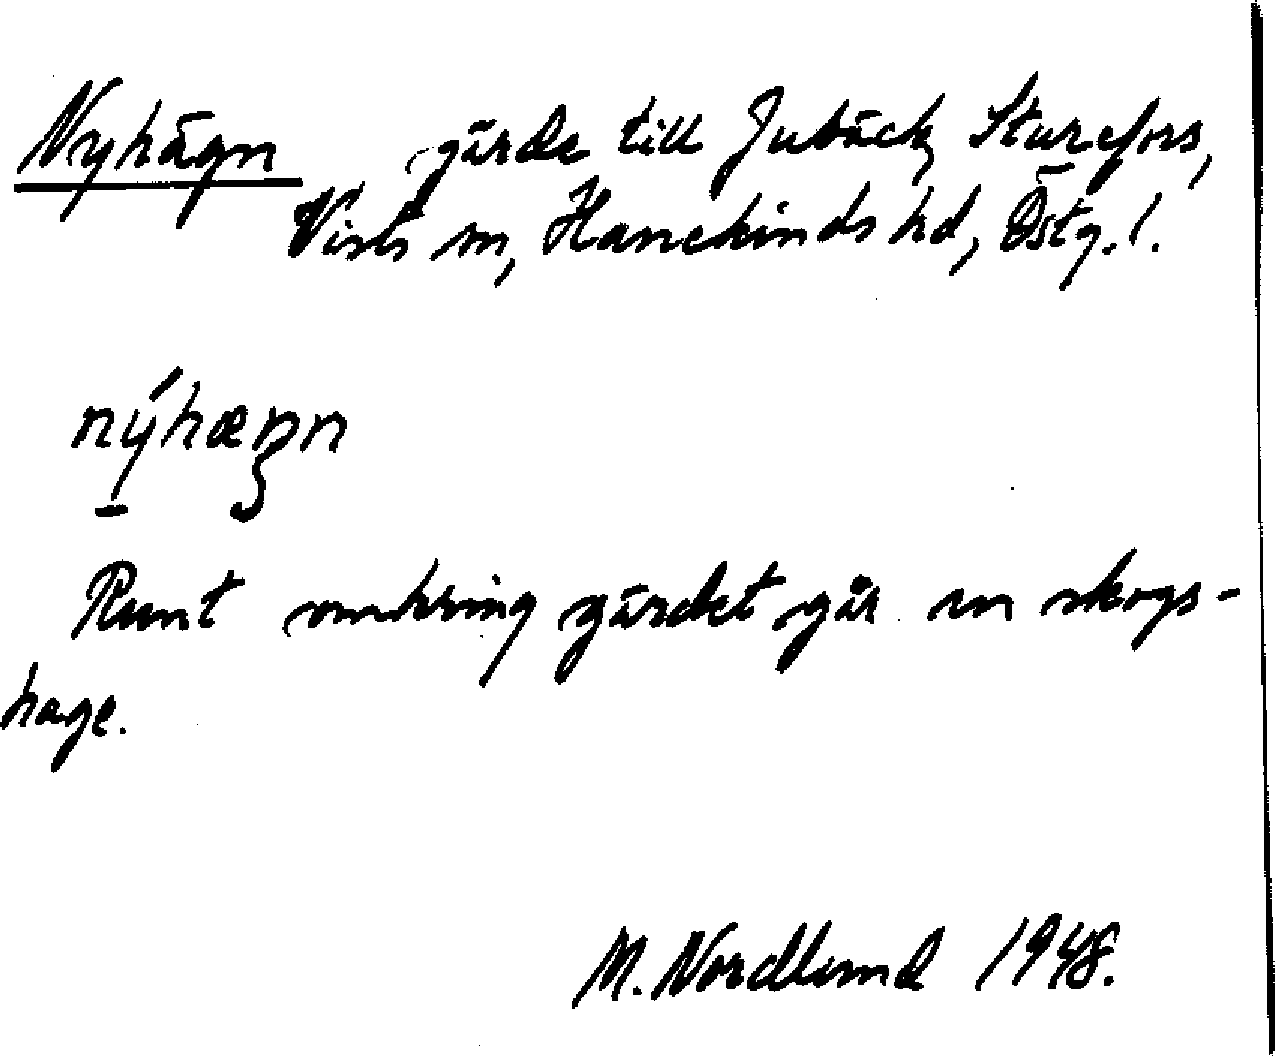 Nyhägn gärde till Jubäck, Sturefors,
Vists sn, Hanekinds hd, Östg. l.
nýhæŋn
Runt omkring gärdet går en skogs-
hage.
M. Nordlund 1948.